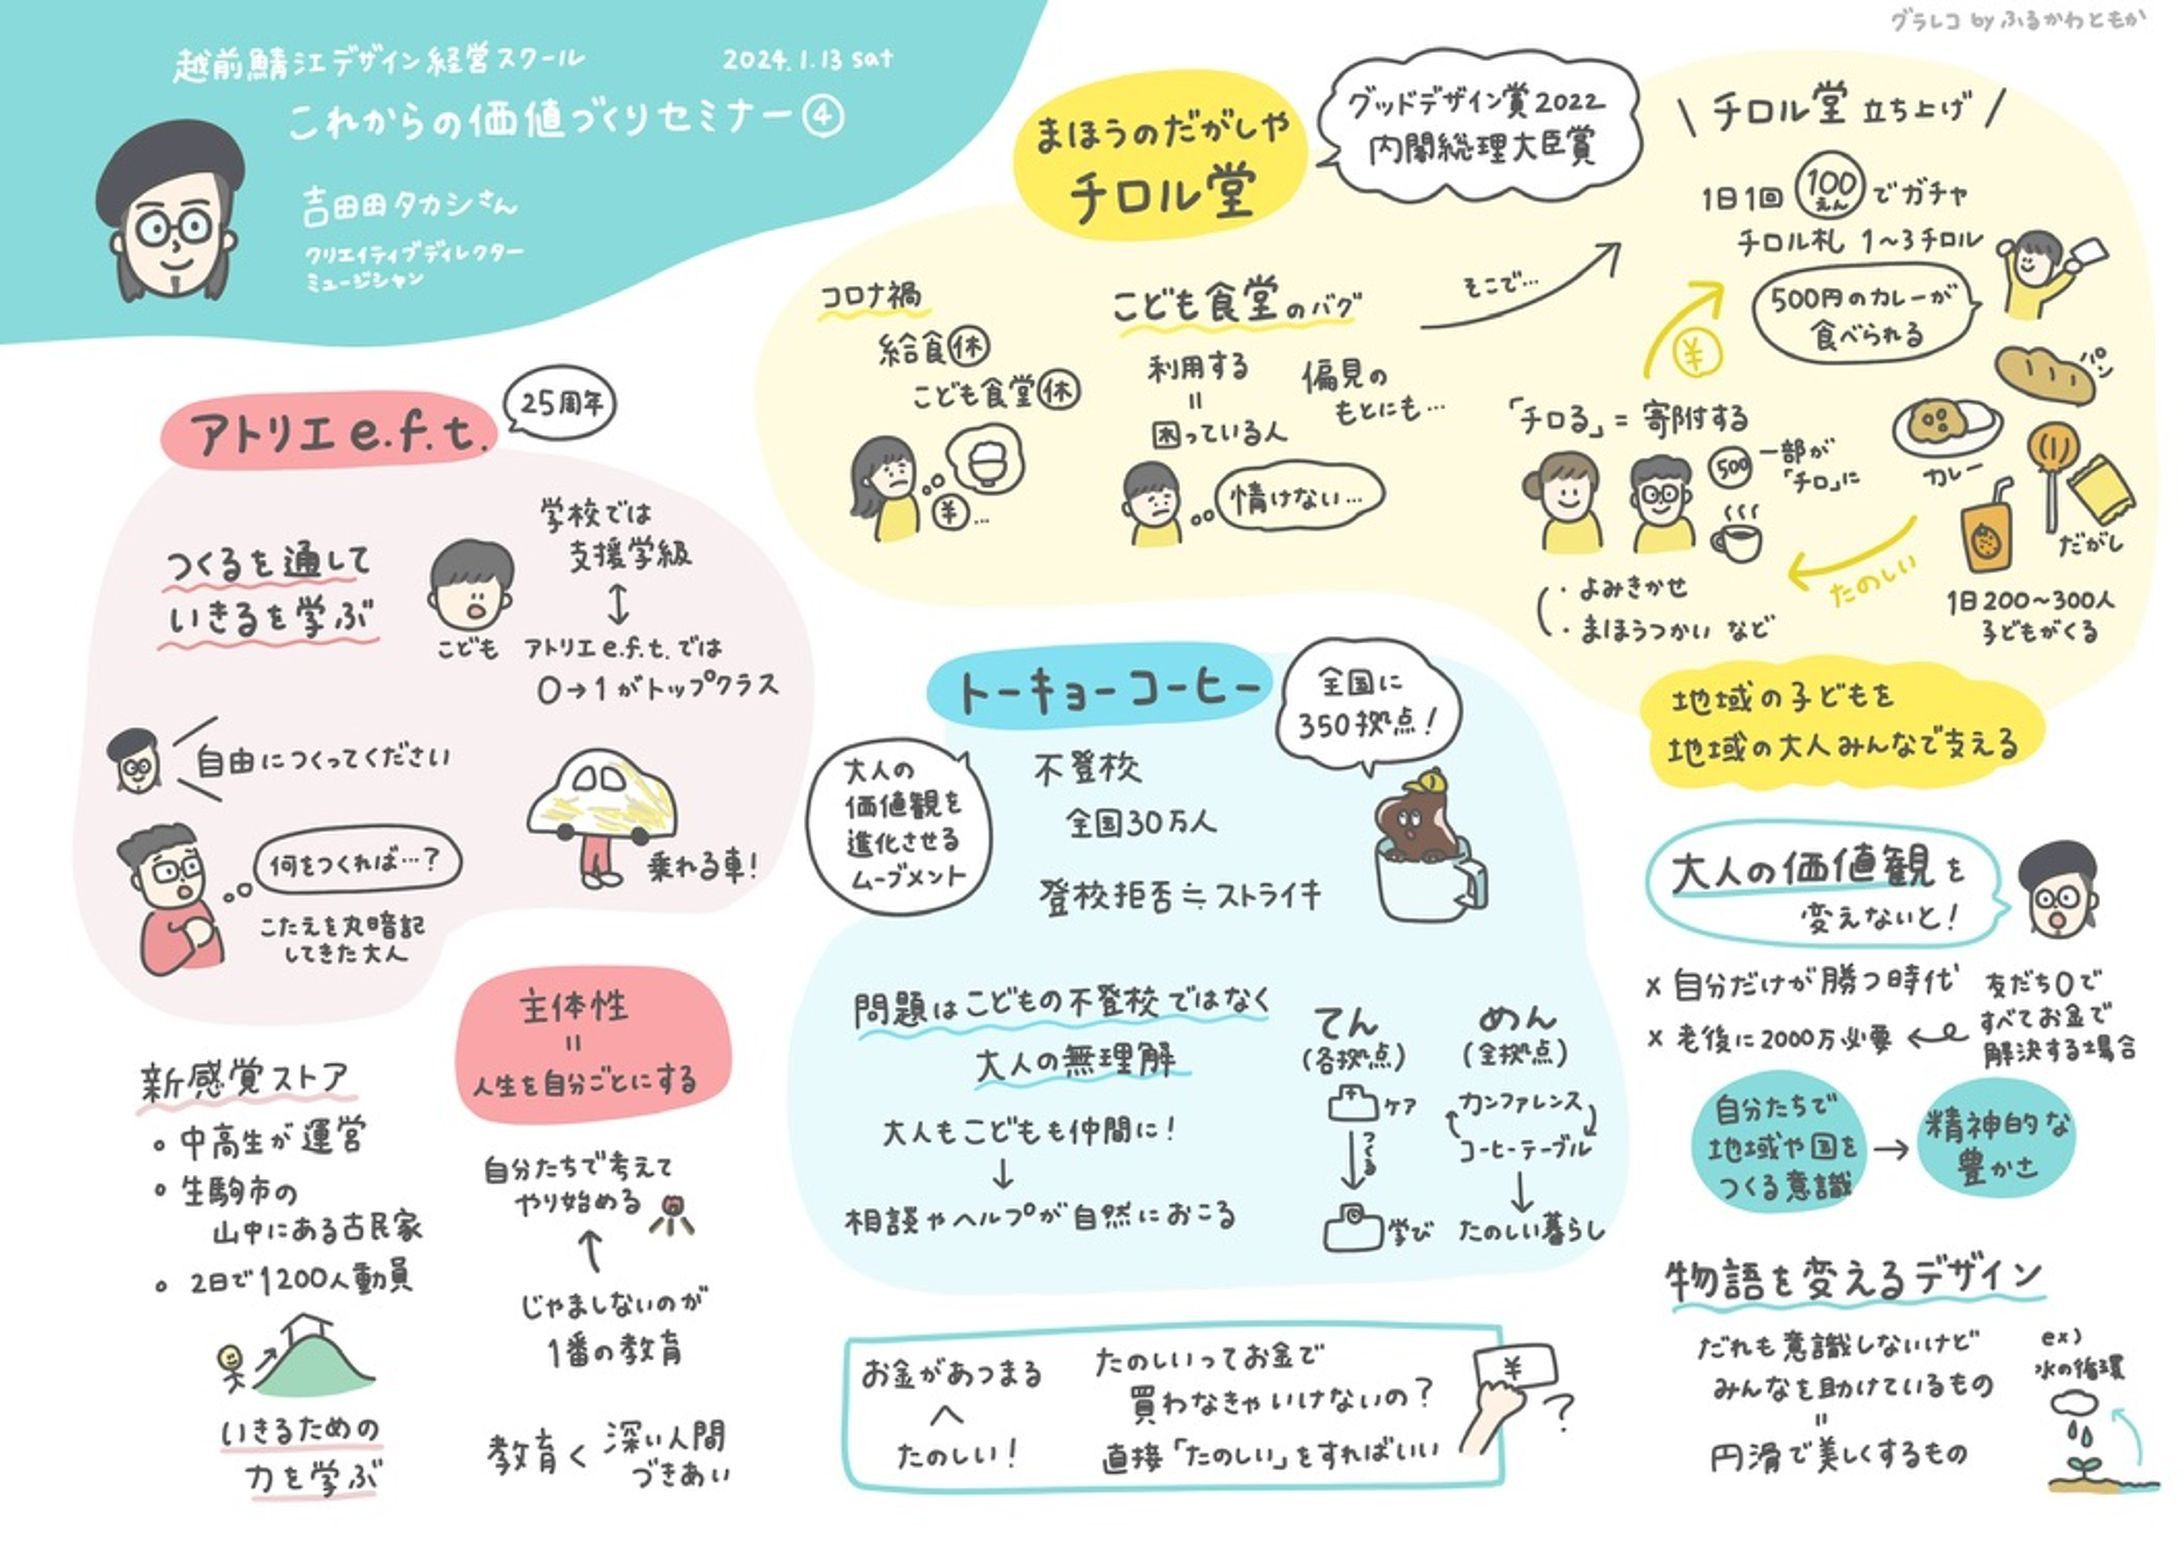 グラレコ by ふるかわともか
越前鯖江デザイン経営スクール
2024.1.13 sat
これからの価値づくりセミナー④
吉田田タカシさん
クリエイティブディレクター
ミュージシャン
まほうのだがしや
チロル堂
グッドデザイン賞2022
内閣総理大臣賞
コロナ禍
給食休
こども食堂休
¥…
こども食堂のバグ
利用する
=
困っている人
偏見の
もとにも…
情けない…
そこで…
チロル堂 立ち上げ
1日1回 100えん でガチャ
チロル札 1〜3チロル
500円のカレーが
食べられる
¥
パン
カレー
だがし
1日200〜300人
子どもがくる
たのしい
「チロる」=寄附する
500 一部が
「チロ」に
・よみきかせ
・まほうつかい など
地域の子どもを
地域の大人みんなで支える
アトリエe.f.t.
25周年
つくるを通して
いきるを学ぶ
こども
学校では
支援学級
↕
アトリエe.f.t.では
0→1がトップクラス
自由につくってください
何をつくれば…?
こたえを丸暗記
してきた大人
乗れる車!
新感覚ストア
• 中高生が運営
• 生駒市の
山中にある古民家
• 2日で1200人動員
いきるための
力を学ぶ
主体性
=
人生を自分ごとにする
自分たちで考えて
やり始める
↑
じゃましないのが
1番の教育
教育 < 深い人間
づきあい
トーキョーコーヒー
全国に
350拠点!
大人の
価値観を
進化させる
ムーブメント
不登校
全国30万人
登校拒否≒ストライキ
問題はこどもの不登校ではなく
大人の無理解
大人もこどもも仲間に!
↓
相談やヘルプが自然におこる
てん
(各拠点)
ケア
つくる
学び
めん
(全拠点)
カンファレンス
コーヒーテーブル
↓
たのしい暮らし
お金があつまる
へ
たのしい!
たのしいってお金で
買わなきゃいけないの?
直接「たのしい」をすればいい
¥
?
大人の価値観を
変えないと!
× 自分だけが勝つ時代
× 老後に2000万必要
友だち0で
すべてお金で
解決する場合
自分たちで
地域や国を
つくる意識
→
精神的な
豊かさ
物語を変えるデザイン
だれも意識しないけど
みんなを助けているもの
=
円滑で美しくするもの
ex)
水の循環